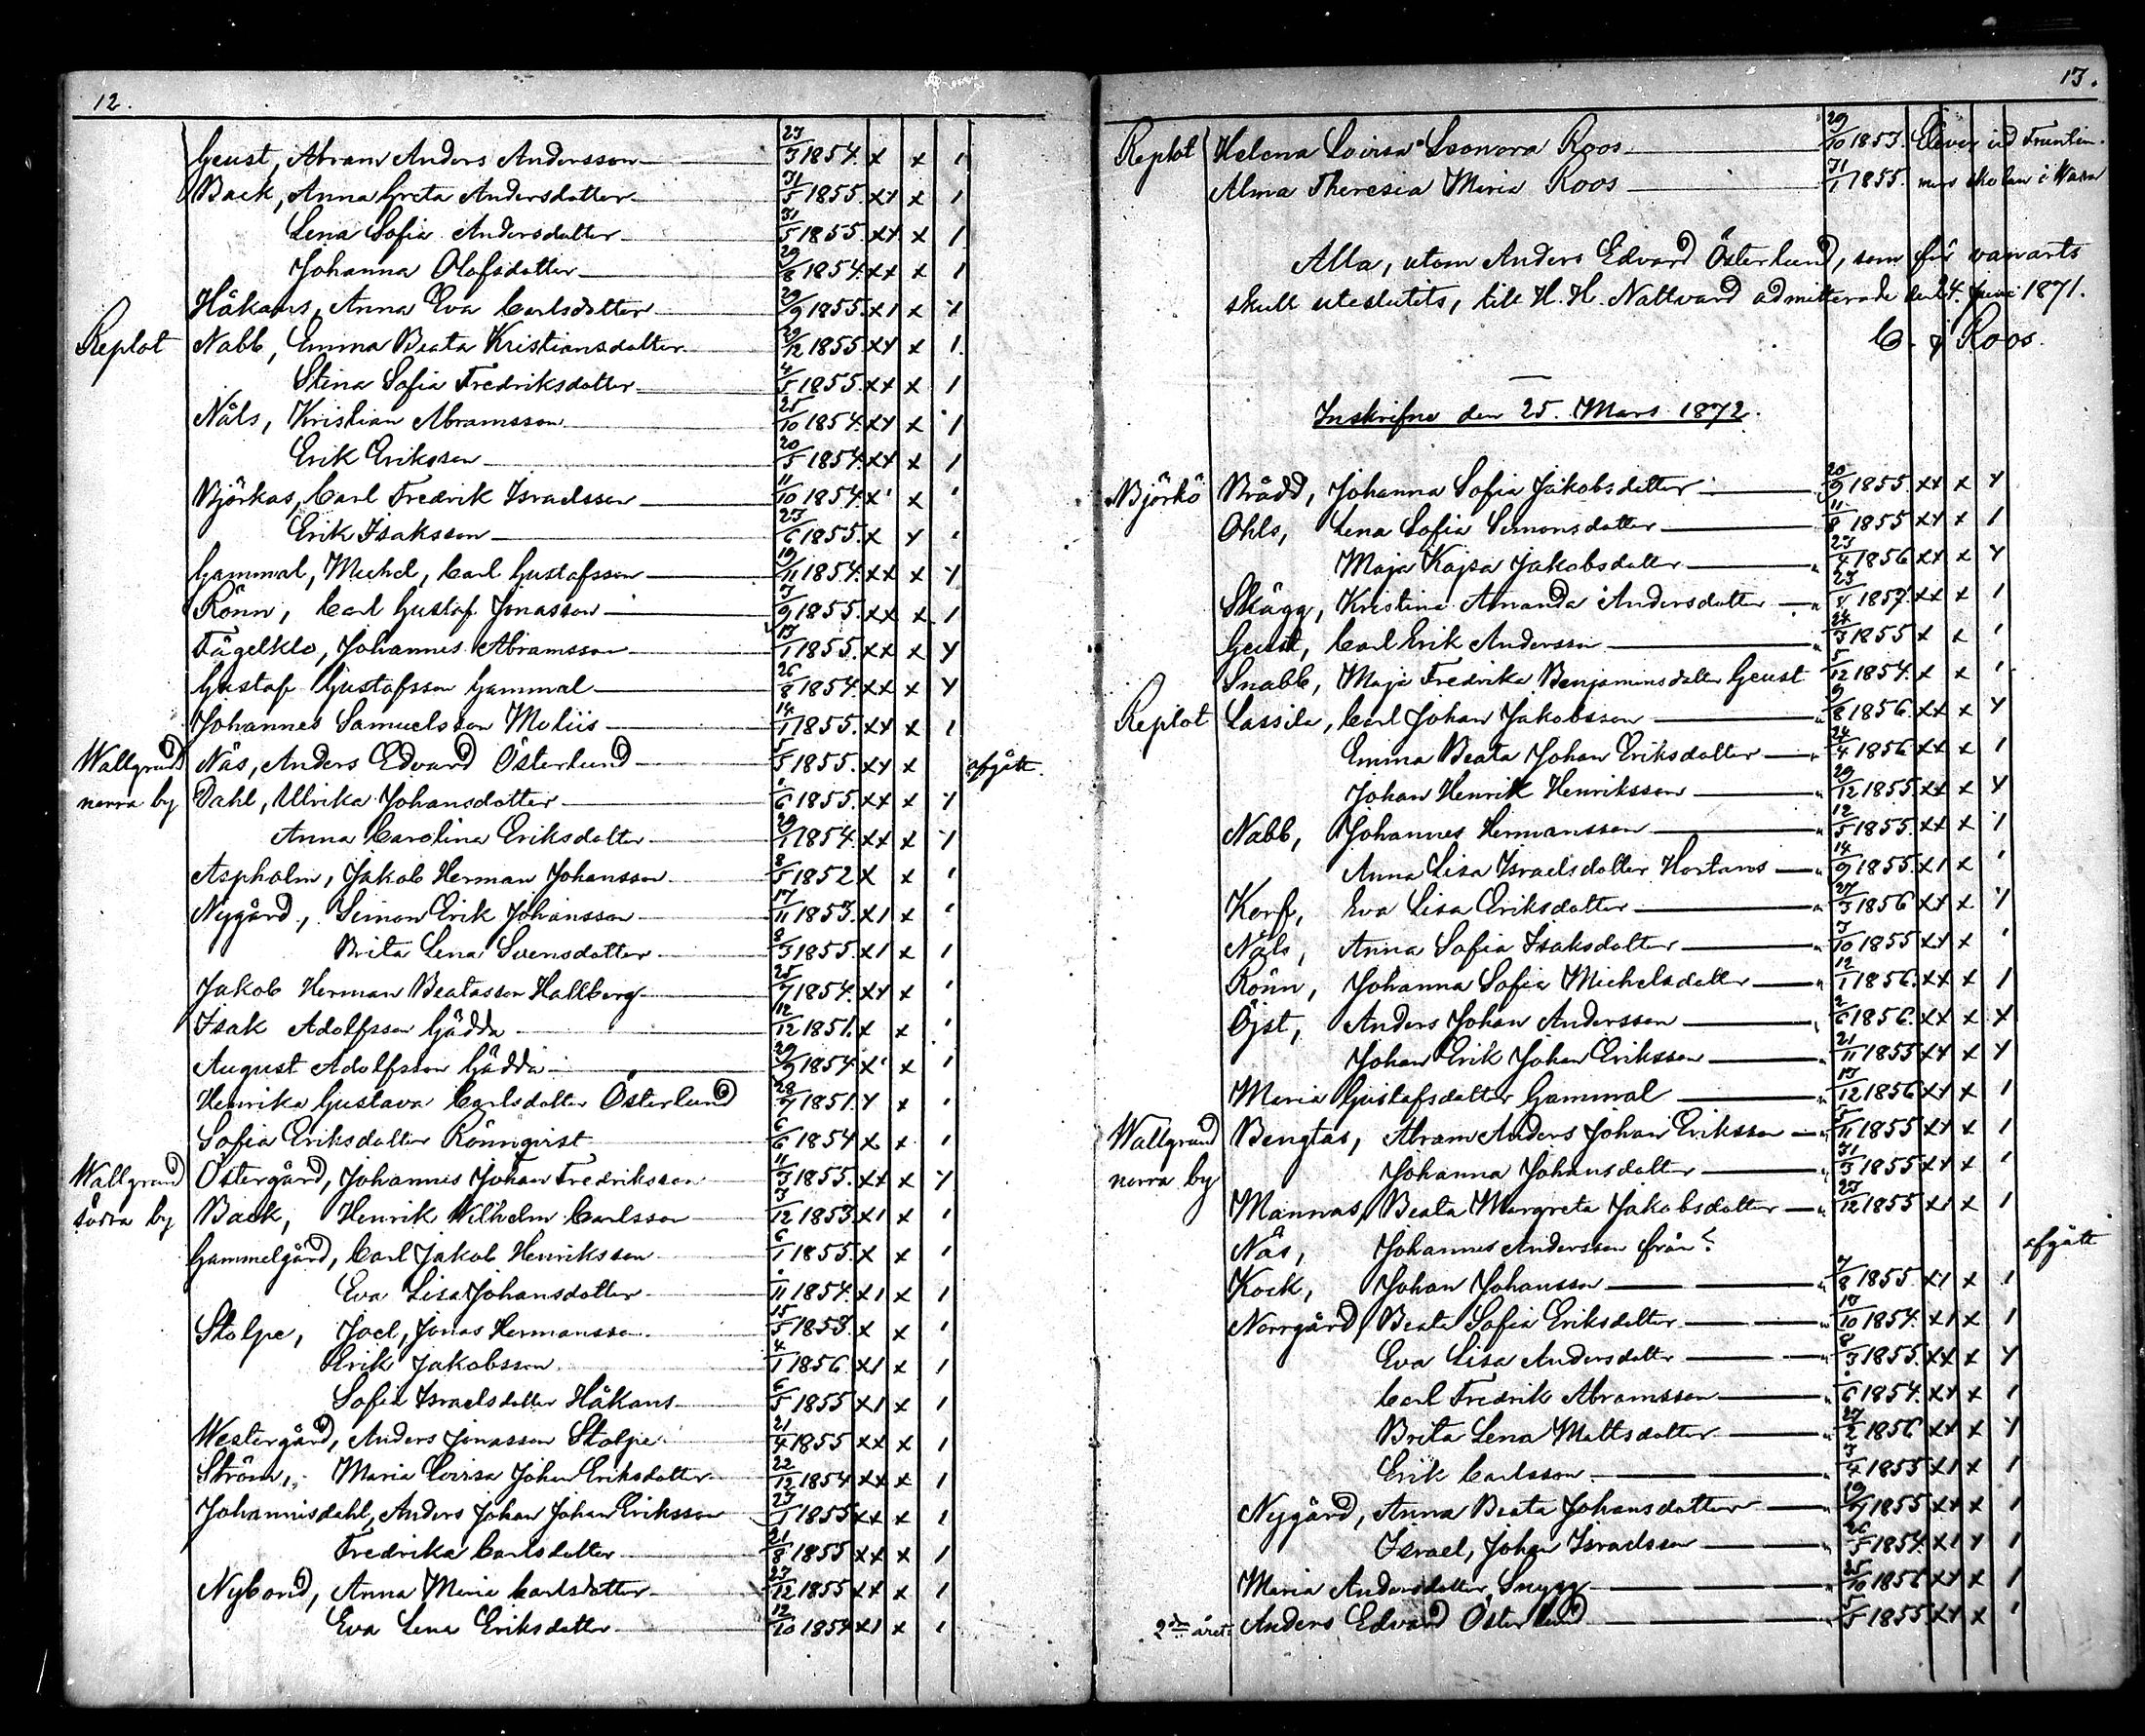 12.
Geust, Abram Anders Andersson 23/3 1854. x x 1
Back, Anna Greta Andersdotter 31/5 1855. xx x 1
Lena Sofia Andersdotter 31/5 1855. xx x 1
Johanna Olofsdotter 29/8 1854. xx x 1
Håkans, Anna Eva Carlsdotter 29/9 1855. x1 x x
Replot Nabb, Emma Beata Kristiansdotter 29/12 1855 xx x 1.
Stina Sofia Fredriksdotter 4/5 1855. xx x 1
Nåls, Kristian Abramsson 25/10 1854. xx x 1
Erik Eriksson 20/5 1854. xx x 1
Björkas, Carl Fredrik Israelsson 11/10 1854. x' x '
Erik Isaksson 23/6 1855. x x '
Gammal, Michel, Carl Gustafsson 19/11 1854. xx x x
Rönn, Carl Gustaf Jonasson 3/9 1855. xx x 1
Fågelklo, Johannes Abramsson 13/1 1855. xx x x
Gustaf Gustafsson Gammal 26/8 1854 xx x x
Johannes Samuelsson Moliis 14/1 1855. xx x 1
Wallgrund Näs, Anders Edvard Österlund 5/5 1855. xx x afgått.
norra by Dahl, Ulrika Johansdotter /6 1855. xx x x
Anna Carolina Eriksdotter 29/1 1854. xx x x
Aspholm, Jakob Herman Johansson 8/5 1852 x x '
Nygård, Simon Erik Johansson 17/11 1853. x1 x '
Brita Lena Svensdotter 8/3 1855. x1 x 1
Jakob Herman Beatasson Hallberg 25/7 1854. xx x '
Isak Adolfsson Gädda 12/12 1851. x x '
August Adolfsson Gädda 29/9 1854 x' x '
Henrika Gustava Carlsdotter Österlund 28/7 1851. x x '
Sofia Eriksdotter Rönnqvist 6/6 1854 x x 1
Wallgrund Östergård, Johannes Johan Fredriksson 11/3 1855. xx x x
södra by Back, Henrik Wilhelm Carlsson 3/12 1853 x1 x '
Gammelgård, Carl Jakob Henriksson 6/1 1855. x x '
Eva Lisa Johansdotter /11 1854. x1 x 1
Stolpe, Joel, Jonas Hermansson 15/5 1853. x x '
Erik Jakobsson 4/1 1856 x1 x 1
Sofia Israelsdotter Håkans 6/5 1855 x1 x 1
Westergård, Anders Jonasson Stolpe 21/4 1855 xx x 1
Ström, Maria Lovisa Johan Eriksdotter 22/12 1854 xx x 1
Johannisdahl, Anders Johan Johan Eriksson 23/1 1855 xx x 1
Fredrika Carlsdotter 21/8 1855 xx x 1
Nybond, Anna Maria Carlsdotter 23/12 1855 xx x 1
Eva Lena Eriksdotter 12/10 1854 x1 x 1
13.
Replot Helena Lovisa Leonora Roos 29/10 1853. Elever vid Fruntim-
Alma Theresia Maria Roos 31/1 1855. mers skolan i Wasa
Alla, utom Anders Edvard Österlund, som för vanarts
skull uteslutits, till H. H. Nattvard admitterade den 24. Juni 1871.
C. J. Roos.
Inskrifne den 25. Mars 1872.
Björkö Brådd, Johanna Sofia Jakobsdotter 20/9 1855. xx x x
Ohls, Lena Sofia Simonsdotter 11/8 1855 xx x 1
Maja Kajsa Jakobsdotter 23/4 1856 xx x x
Skägg, Kristina Amanda Andersdotter 23/ 1857. xx x 1
Geust, Carl Erik Andersson 24/3 1855 x x '
Snabb, Maja Fredrika Benjaminsdotter Geust 5/12 1854. x x '
Replot Lassila, Carl Johan Jakobsson 9/8 1856. xx x x
Emma Beata Johan Eriksdotter 24/4 1856 xx x 1
Johan Henrik Henriksson 29/12 1855. xx x x
Nabb, Johannes Hermansson 12/5 1855. xx x 1
Anna Lisa Israelsdotter Hortans 14/9 1855. x1 x '
Korf, Eva Lisa Eriksdotter 27/3 1856 xx x x
Nåls, Anna Sofia Isaksdotter 3/10 1855 xx x '
Rönn, Johanna Sofia Michelsdotter 12/1 1856. xx x 1
Öjst, Anders Johan Andersson 2/6 1856. xx x x
Johan Erik Johan Eriksson 21/11 1855 xx x x
Maria Gustafsdotter Gammal 13/12 1856 xx x 1
Wallgrund Bengtas, Abram Anders Johan Eriksson 5/11 1855 xx x 1
norra by Johanna Johansdotter 31/3 1855 xx x '
Mannas, Beata Margreta Jakobsdotter 23/12 1855 xx x 1
Näs, Johannes Andersson från? afgått
Kock, Johan Johansson 7/8 1855. x1 x 1
Norrgård, Beata Sofia Eriksdotter 13/10 1854. x1 x 1
Eva Lisa Andersdotter 8/3 1855. xx x x
Carl Fredrik Abramsson /6 1854. xx x 1
Brita Lena Mattsdotter 27/2 1856 xx x x
Erik Carlsson 3/4 1855 x1 x 1
Nygård, Anna Beata Johansdotter 19/ 1855 xx x 1
Israel, Johan Israelsson 26/5 1854. x1 x 1
Maria Andersdotter Snygg 25/10 1856 xx x 1
2dra året. Anders Edvard Österlund 5/5 1855. xx x '